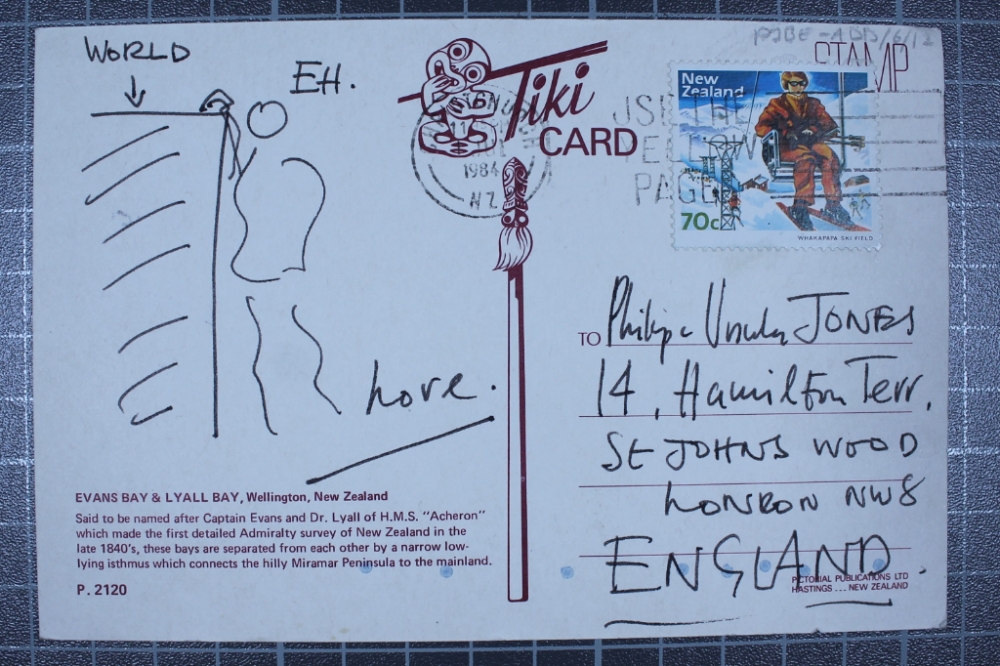 WORLD
EH.
Love.
EVANS BAY & LYALL BAY, Wellington, New Zealand
Said to be named after Captain Evans and Dr. Lyall of H.M.S. "Acheron"
which made the first detailed Admiralty survey of New Zealand in the
late 1840's, these bays are separated from each other by a narrow low-
lying isthmus which connects the hilly Miramar Peninsula to the mainland.
P. 2120
Tiki
CARD
1984
NZ
STAMP
New
Zealand
70c
WHAKAPAPA SKI FIELD
USE THE
YELLOW
PAGES
TO Philip & Ursula JONES
14, Hamilton Terr.
ST JOHNS WOOD
LONDON NW8
ENGLAND.
PICTORIAL PUBLICATIONS LTD
HASTINGS ... NEW ZEALAND